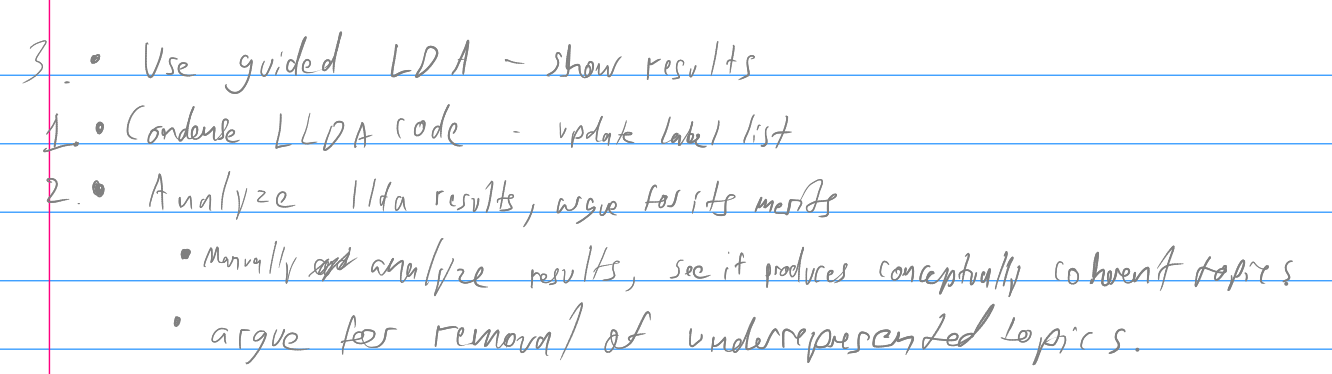 3. • Use guided LDA - show results
1. • Condense LLDA code - update label list
2. • Analyze llda results, argue for its merits
• Manually analyze results, see if produces conceptually coherent topics
• argue for removal of underrepresented topics.